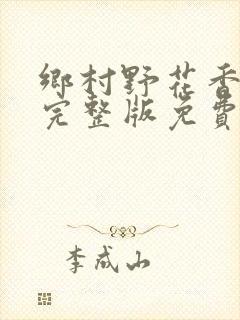 鄉村野花香
完整版免費
李成山